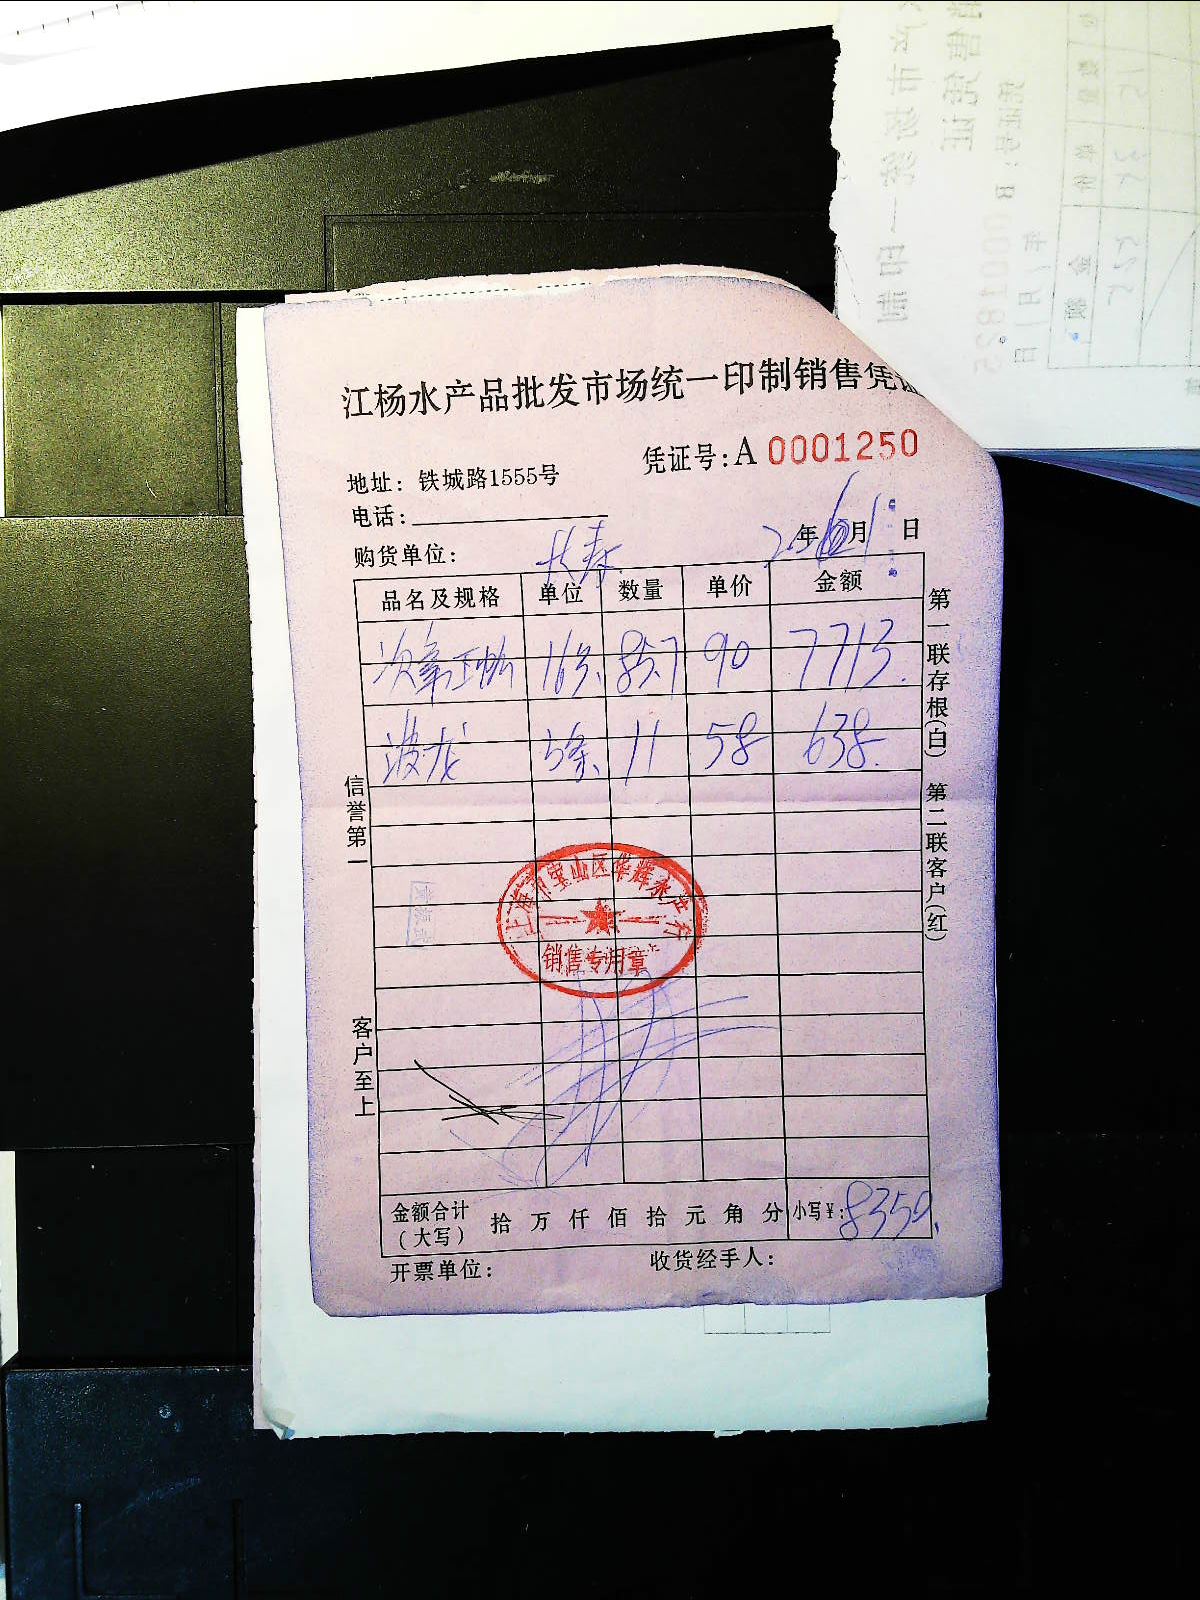 江杨水产品批发市场统一印制销售凭证
凭证号:A 0001250
地址: 铁城路1555号
电话:
购货单位: 长春 年6月1日
品名及规格 单位 数量 单价 金额
85.7 90 7713.
波龙 5条 11 58 638.
信誉第一
客户至上
第一联存根(白) 第二联客户(红)
上海市宝山区华辉水产行
销售专用章
金额合计(大写) 拾 万 仟 佰 拾 元 角 分 小写¥: 8350.
开票单位: 收货经手人: